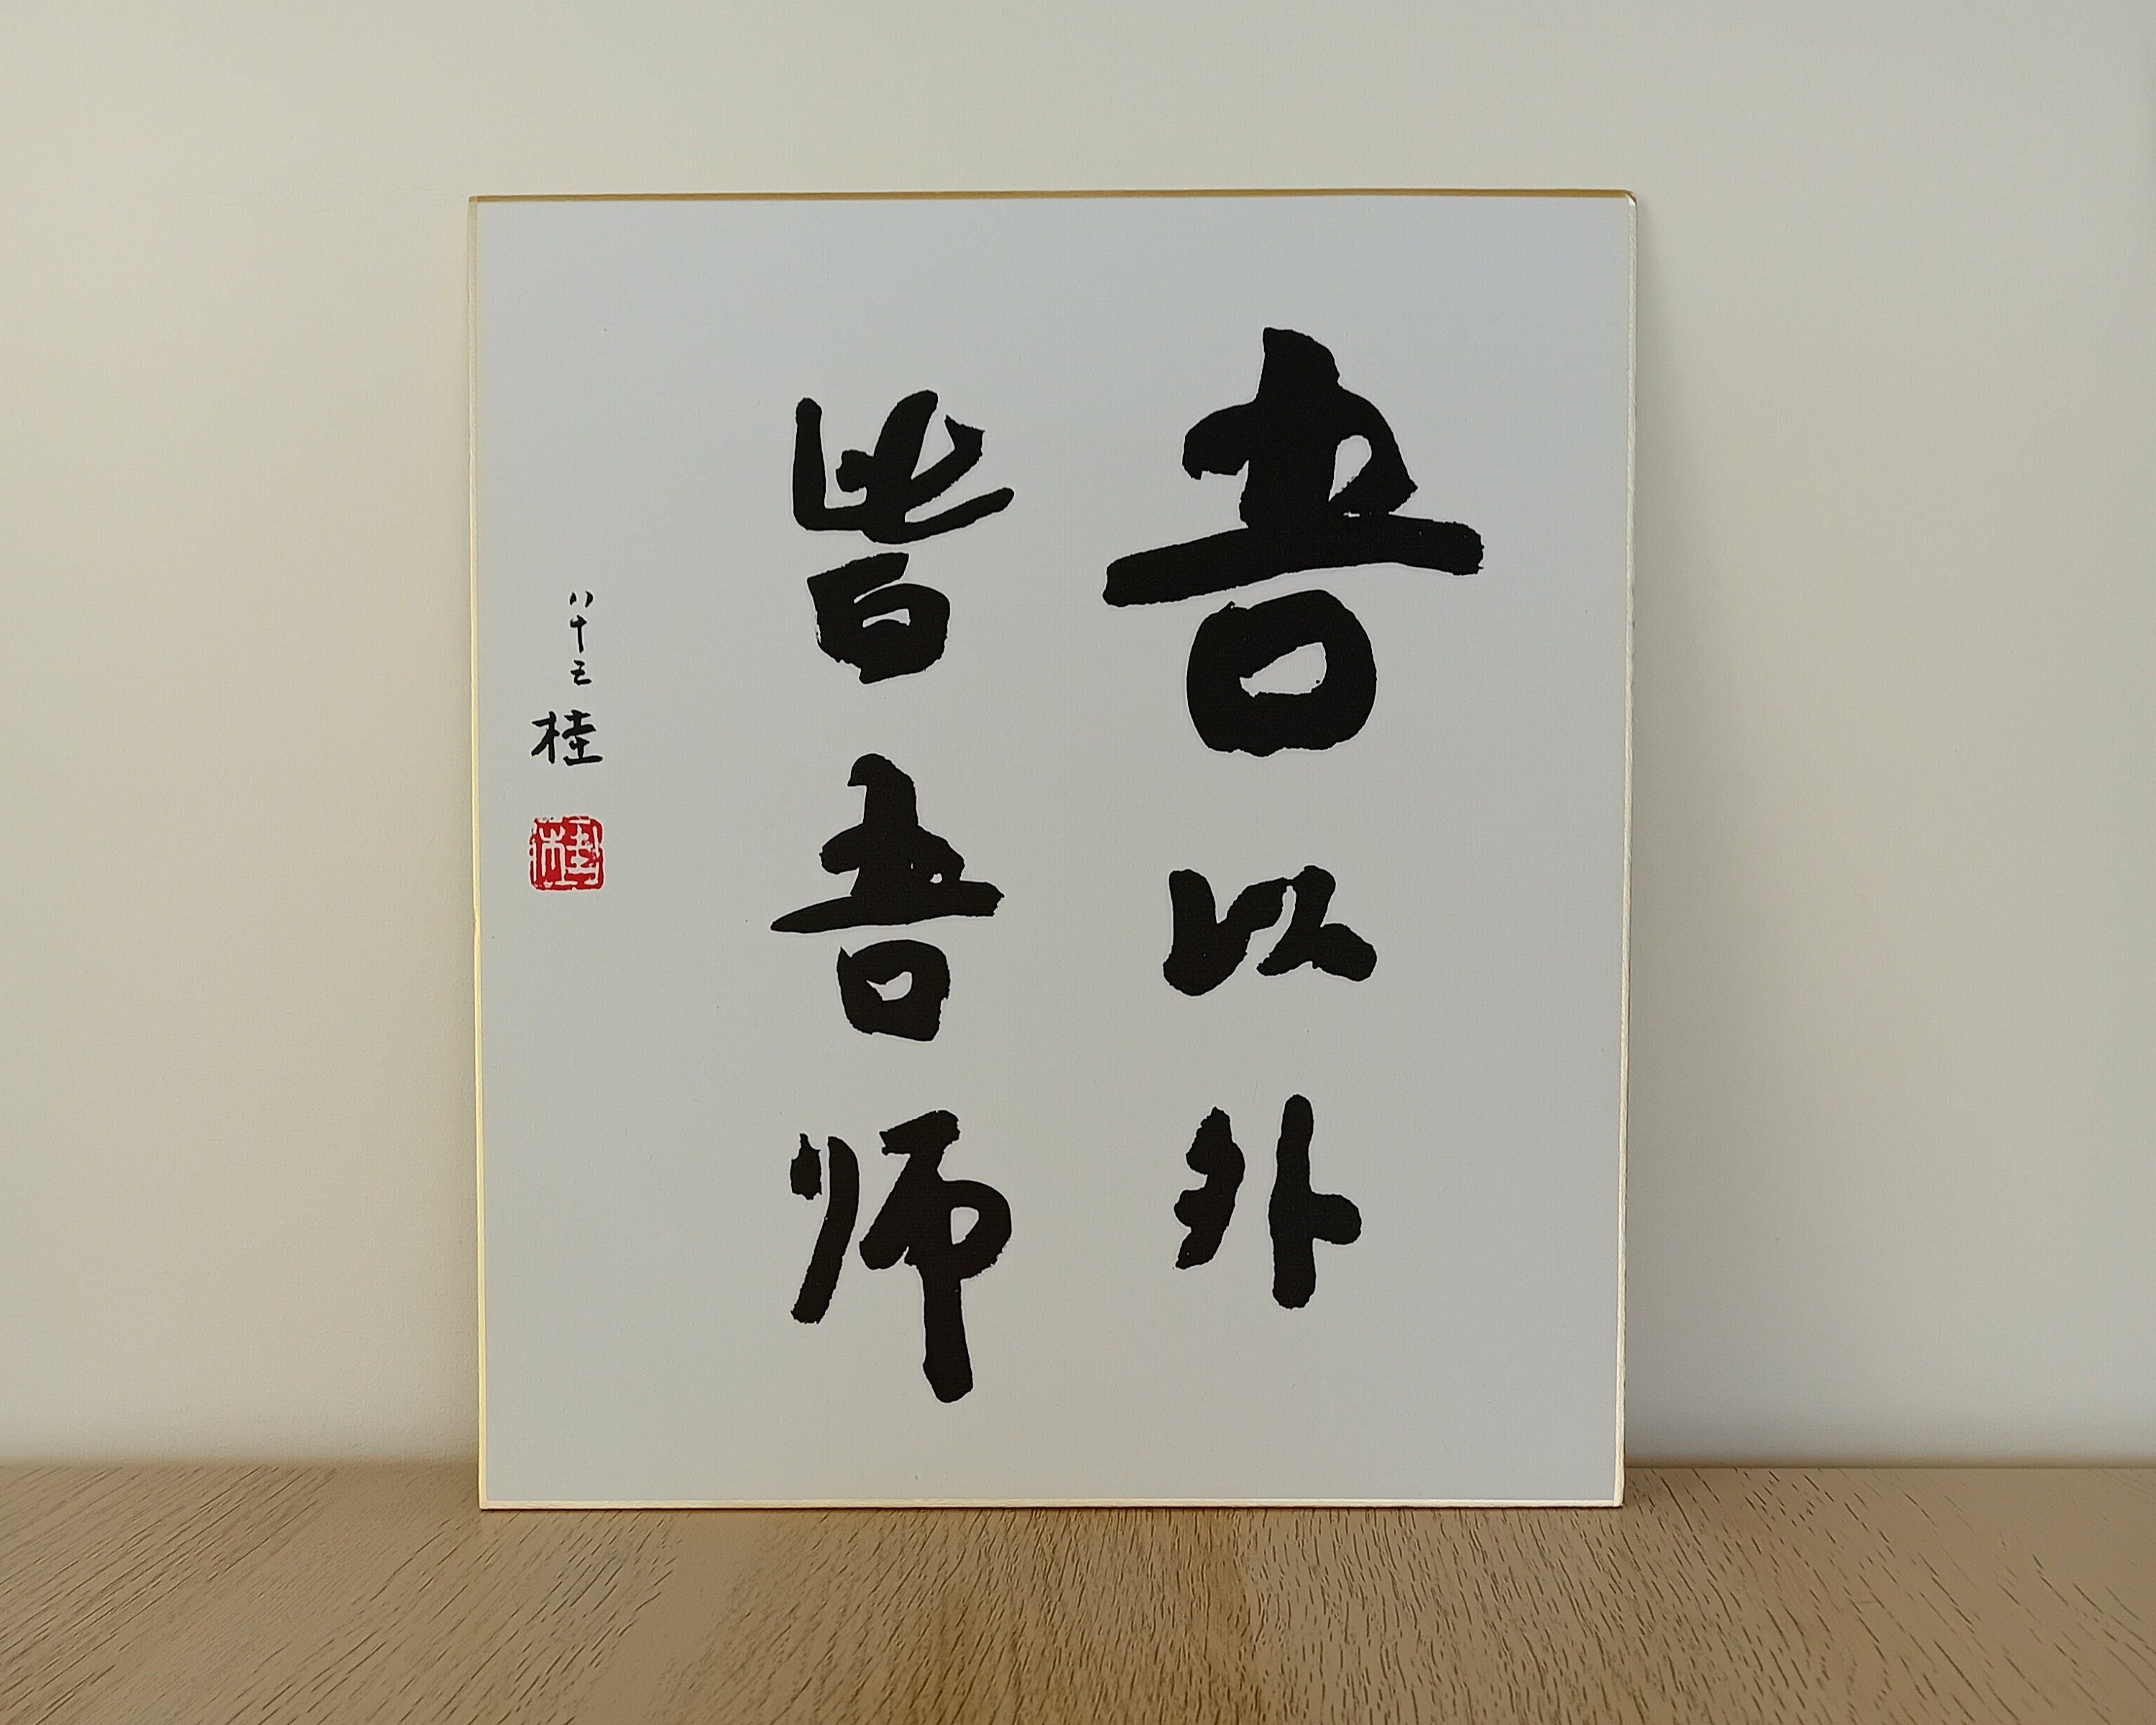 吾以外
皆吾師
八十五 桂
桂